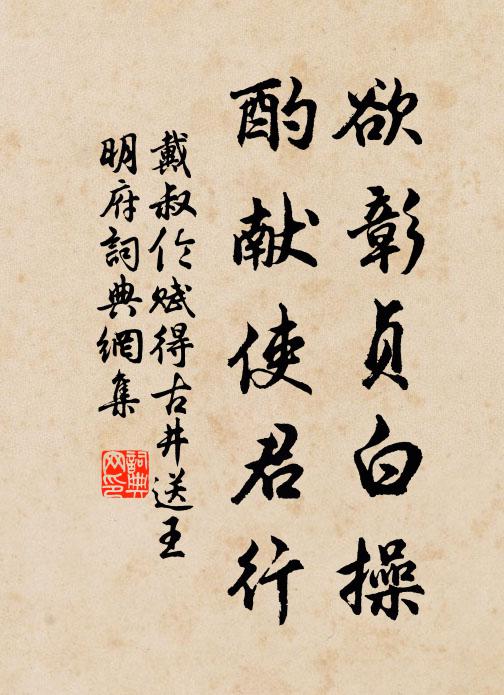 欲彰貞白操
酌献使君行
戴叔伦赋得古井送王
明府詞典網集
詞典网印